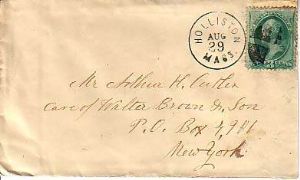 HOLLISTON
AUG
29
MASS.
Mr Arthur H. Cutler
Care of Walter Brown & Son
P.O. Box
New York